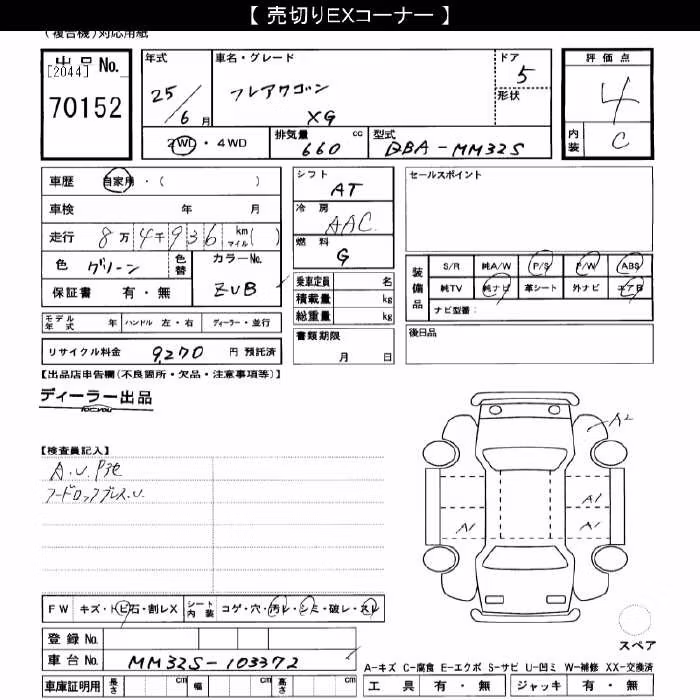 【 売切りEXコーナー 】
(複合機)対応用紙
出品 No.
[2044]
70152
年式
25／6月
車名・グレード
フレアワゴン
XG
ドア
5
形状
評価点
4
内装
C
2WD・4WD
排気量 cc
660
型式
DBA-MM32S
車歴 自家用・( )
車検 年 月
走行 8万4千936 km マイル( )
色 グリーン
色替
カラーNo.
ZUB
保証書 有・無
シフト
AT
冷房
AAC
燃料
G
乗車定員 名
積載量 kg
総重量 kg
セールスポイント
装備品
S/R 純A/W P/S P/W ABS
純TV 純ナビ 革シート 外ナビ エアB
ナビ型番:
モデル年式 年 ハンドル 左・右 ディーラー・並行
リサイクル料金 9,270 円 預託済
書類期限
月 日
後日品
【出品店申告欄(不良箇所・欠品・注意事項等)】
ディーラー出品
【検査員記入】
A.U.P他
フードロックブレス.U.
A2
A1
A1 A1
FW キズ・トビ石・割レX
シート内装 コゲ・穴・汚レ・シミ・破レ・スレ
登録 No.
車台 No. MM32S-103372
車庫証明用 長さ cm 幅 cm 高さ cm
スペア
A-キズ C-腐食 E-エクボ S-サビ U-凹ミ W-補修 XX-交換済
工具 有・無 ジャッキ 有・無